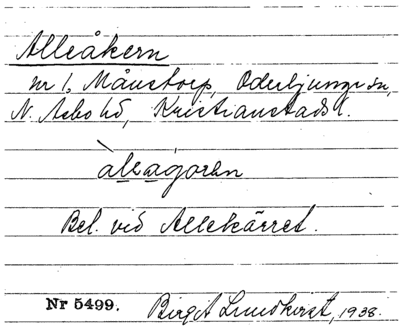 Alleåkern
nr 1, Månstorp, Oderljunga sn,
N. Åsbo hd, Kristianstads l.
àleågorən
Bel. vid Allekärret.
Nr 5499. Birgit Lundkvist, 1938.